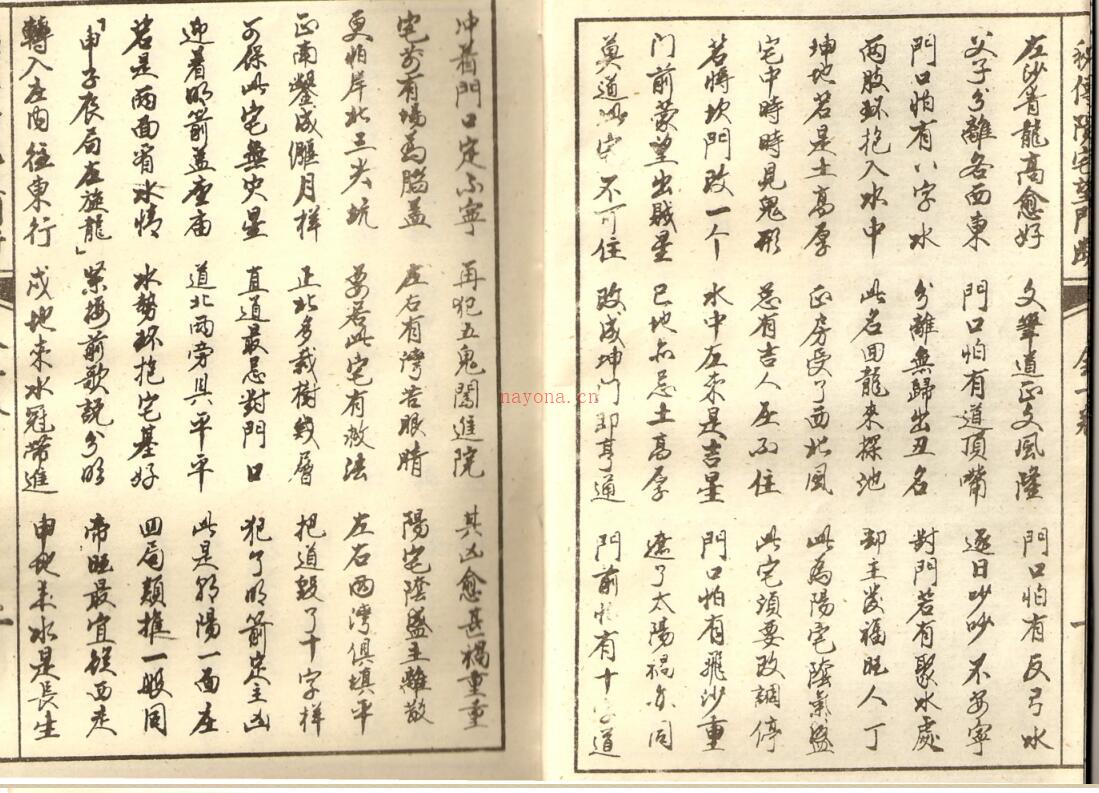 秘傳陽宅望門斷
全一卷
左沙青龍高愈好 文筆道正文風隆 門口怕有反弓水
父子分離各西東 門口怕有道頂帶 逐日吵吵不安寧
門口怕有八字水 分離無歸出丑名 對門若有聚水處
两肢环抱入水中 此名回龍來探池 却主發福旺人丁
坤地若是土高厚 正房受了西北風 此為陽宅陰氣盛
宅中時時見鬼形 总有吉人压不住 此宅須要改調停
若將坎門改一个 水中左来是吉星 門口怕有飛沙重
门前蒙望出賊星 巳地亦忌土高厚 遮了太陽禍亦同
莫道此宅不可住 改成坤门即亨通 門前怕有十字道
冲着門口定不寧 再犯五鬼闖進院 其凶愈甚禍重重
宅前有塲为腦盖 左右有灣苦眼睛 陽宅陰盛主離散
更怕岸北三尖坑 要若此宅有救法 左右两灣俱填平
正南鑿成偃月样 正北多栽樹幾層 把道毀了十字样
可保此宅無灾星 直道最忌對門口 犯了明箭定主凶
迎着明箭盖座庙 道北两旁具平平 此是朝陽一面庄
若是两面省水情 水势环抱宅基好 四局類推一般同
「申子辰局左旋龍」 緊接前歌說分明 帝旺最宜從西走
轉入庄内往東行 戌地来水冠帶進 申地来水是長生
nayona.cn